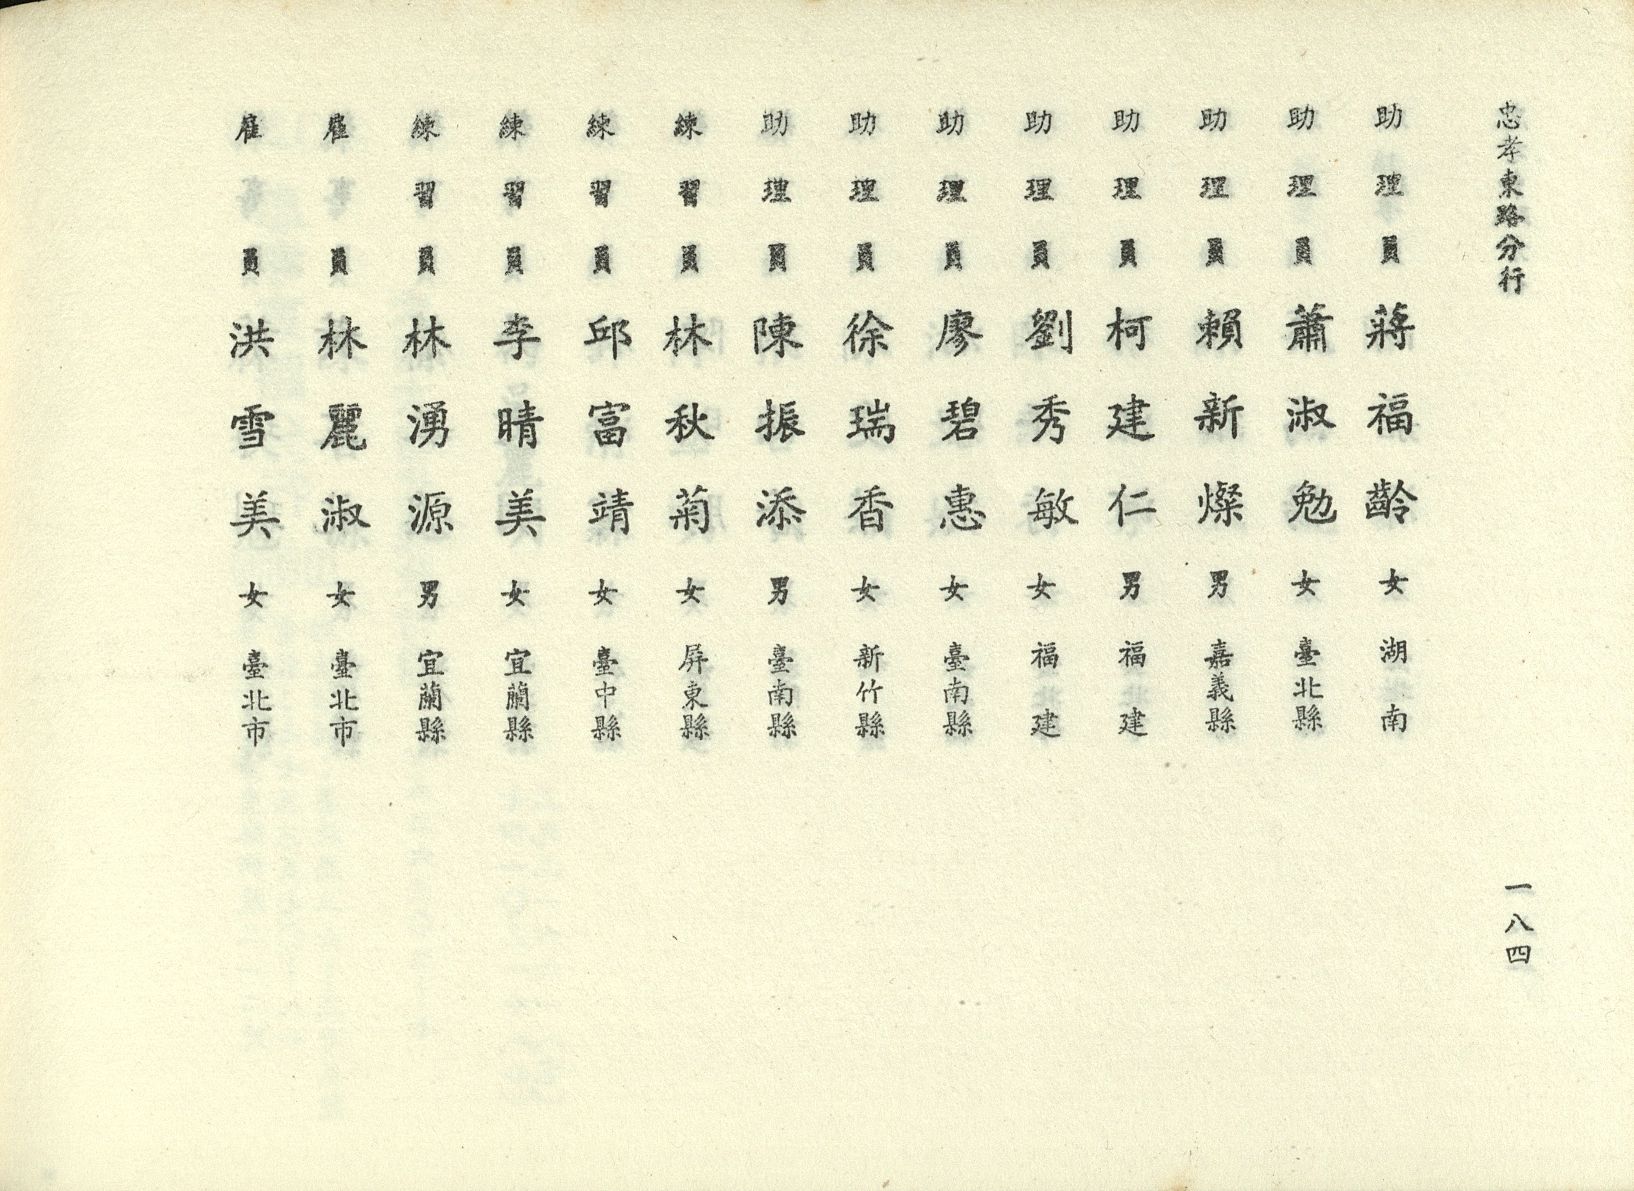 忠孝東路分行
一八四
助理員 蔣福齡 女 湖南
助理員 蕭淑勉 女 臺北縣
助理員 賴新燦 男 嘉義縣
助理員 柯建仁 男 福建
助理員 劉秀敏 女 福建
助理員 廖碧惠 女 臺南縣
助理員 徐瑞香 女 新竹縣
助理員 陳振添 男 臺南縣
練習員 林秋菊 女 屏東縣
練習員 邱富靖 女 臺中縣
練習員 李晴美 女 宜蘭縣
練習員 林湧源 男 宜蘭縣
雇員 林麗淑 女 臺北市
雇員 洪雪美 女 臺北市